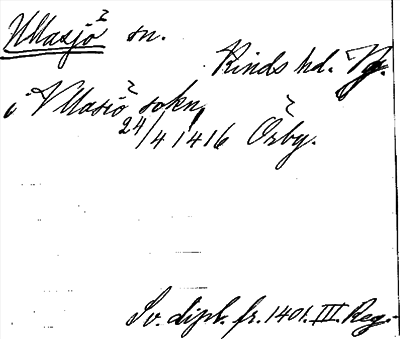 Ullasjö sn.
Kinds hd. Vg.
i Vllasiö sokn
24/4 1416 Örby.
Sv. dipl. fr. 1401. III. Reg.